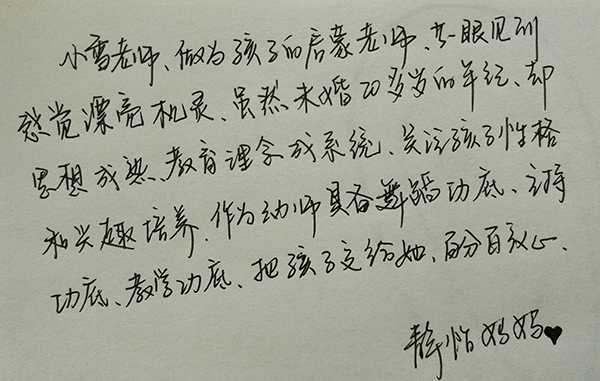 小雪老师、做为孩子的启蒙老师、第一眼见到
感觉漂亮机灵、虽然未婚20多岁的年纪、却
思想成熟、教育理念成系统、关注孩子性格
和兴趣培养、作为幼师具备舞蹈功底、主持
功底、教学功底、把孩子交给她、百分百放心、
静怡妈妈♥